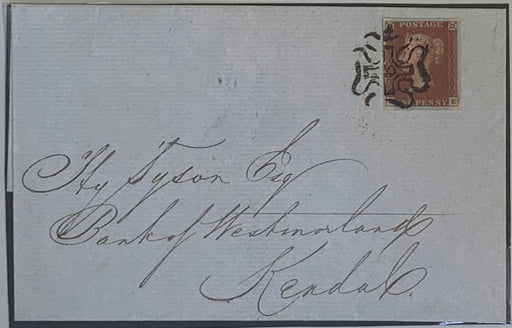 POSTAGE
ONE PENNY
Hy Tyson Esq
Bank of Westmorland
Kendal.